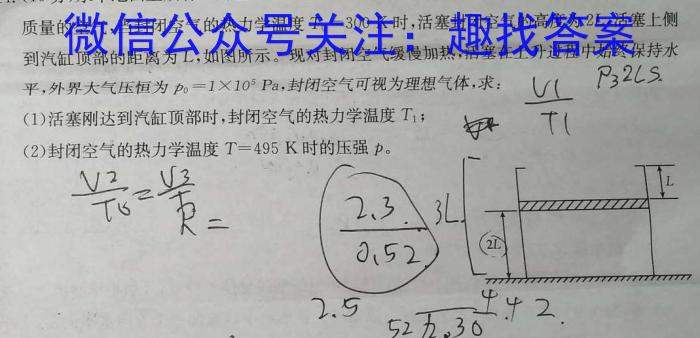 质量的 封闭空气的热力学温度 =300 K时,活塞 封闭空气的高度 2L,活塞上侧
微信公众号关注:趣找答案
到汽缸顶部的距离为L,如图所示。现对封闭空气缓慢加热,活塞在上升过程中始终保持水
平,外界大气压恒为 p₀=1×10⁵ Pa,封闭空气可视为理想气体,求:
P₃2LS
V1
T1
(1)活塞刚达到汽缸顶部时,封闭空气的热力学温度 T₁;
(2)封闭空气的热力学温度 T=495 K 时的压强 p。
V2 = V3 =
2.3
0.52
3L
2L
L
2.5
4.42.
52 2.30